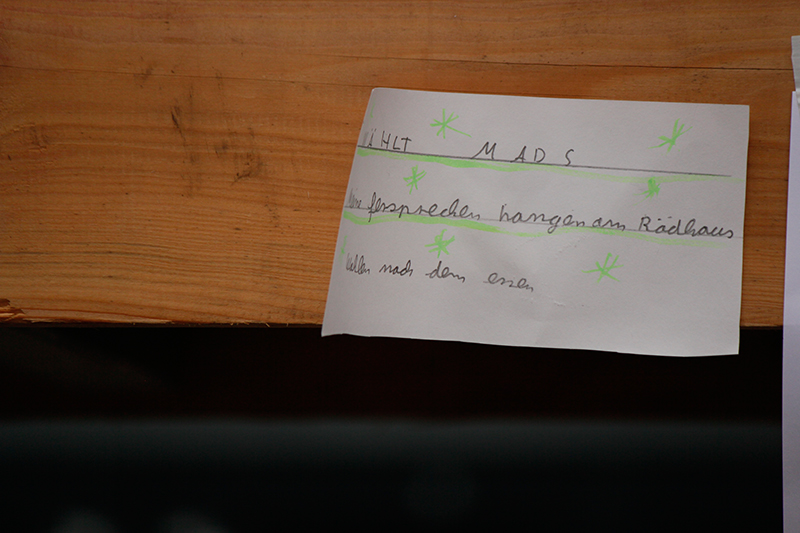 WÄHLT MADS
fersprechen hangen am Rädhaus
Wellen nach dem essen